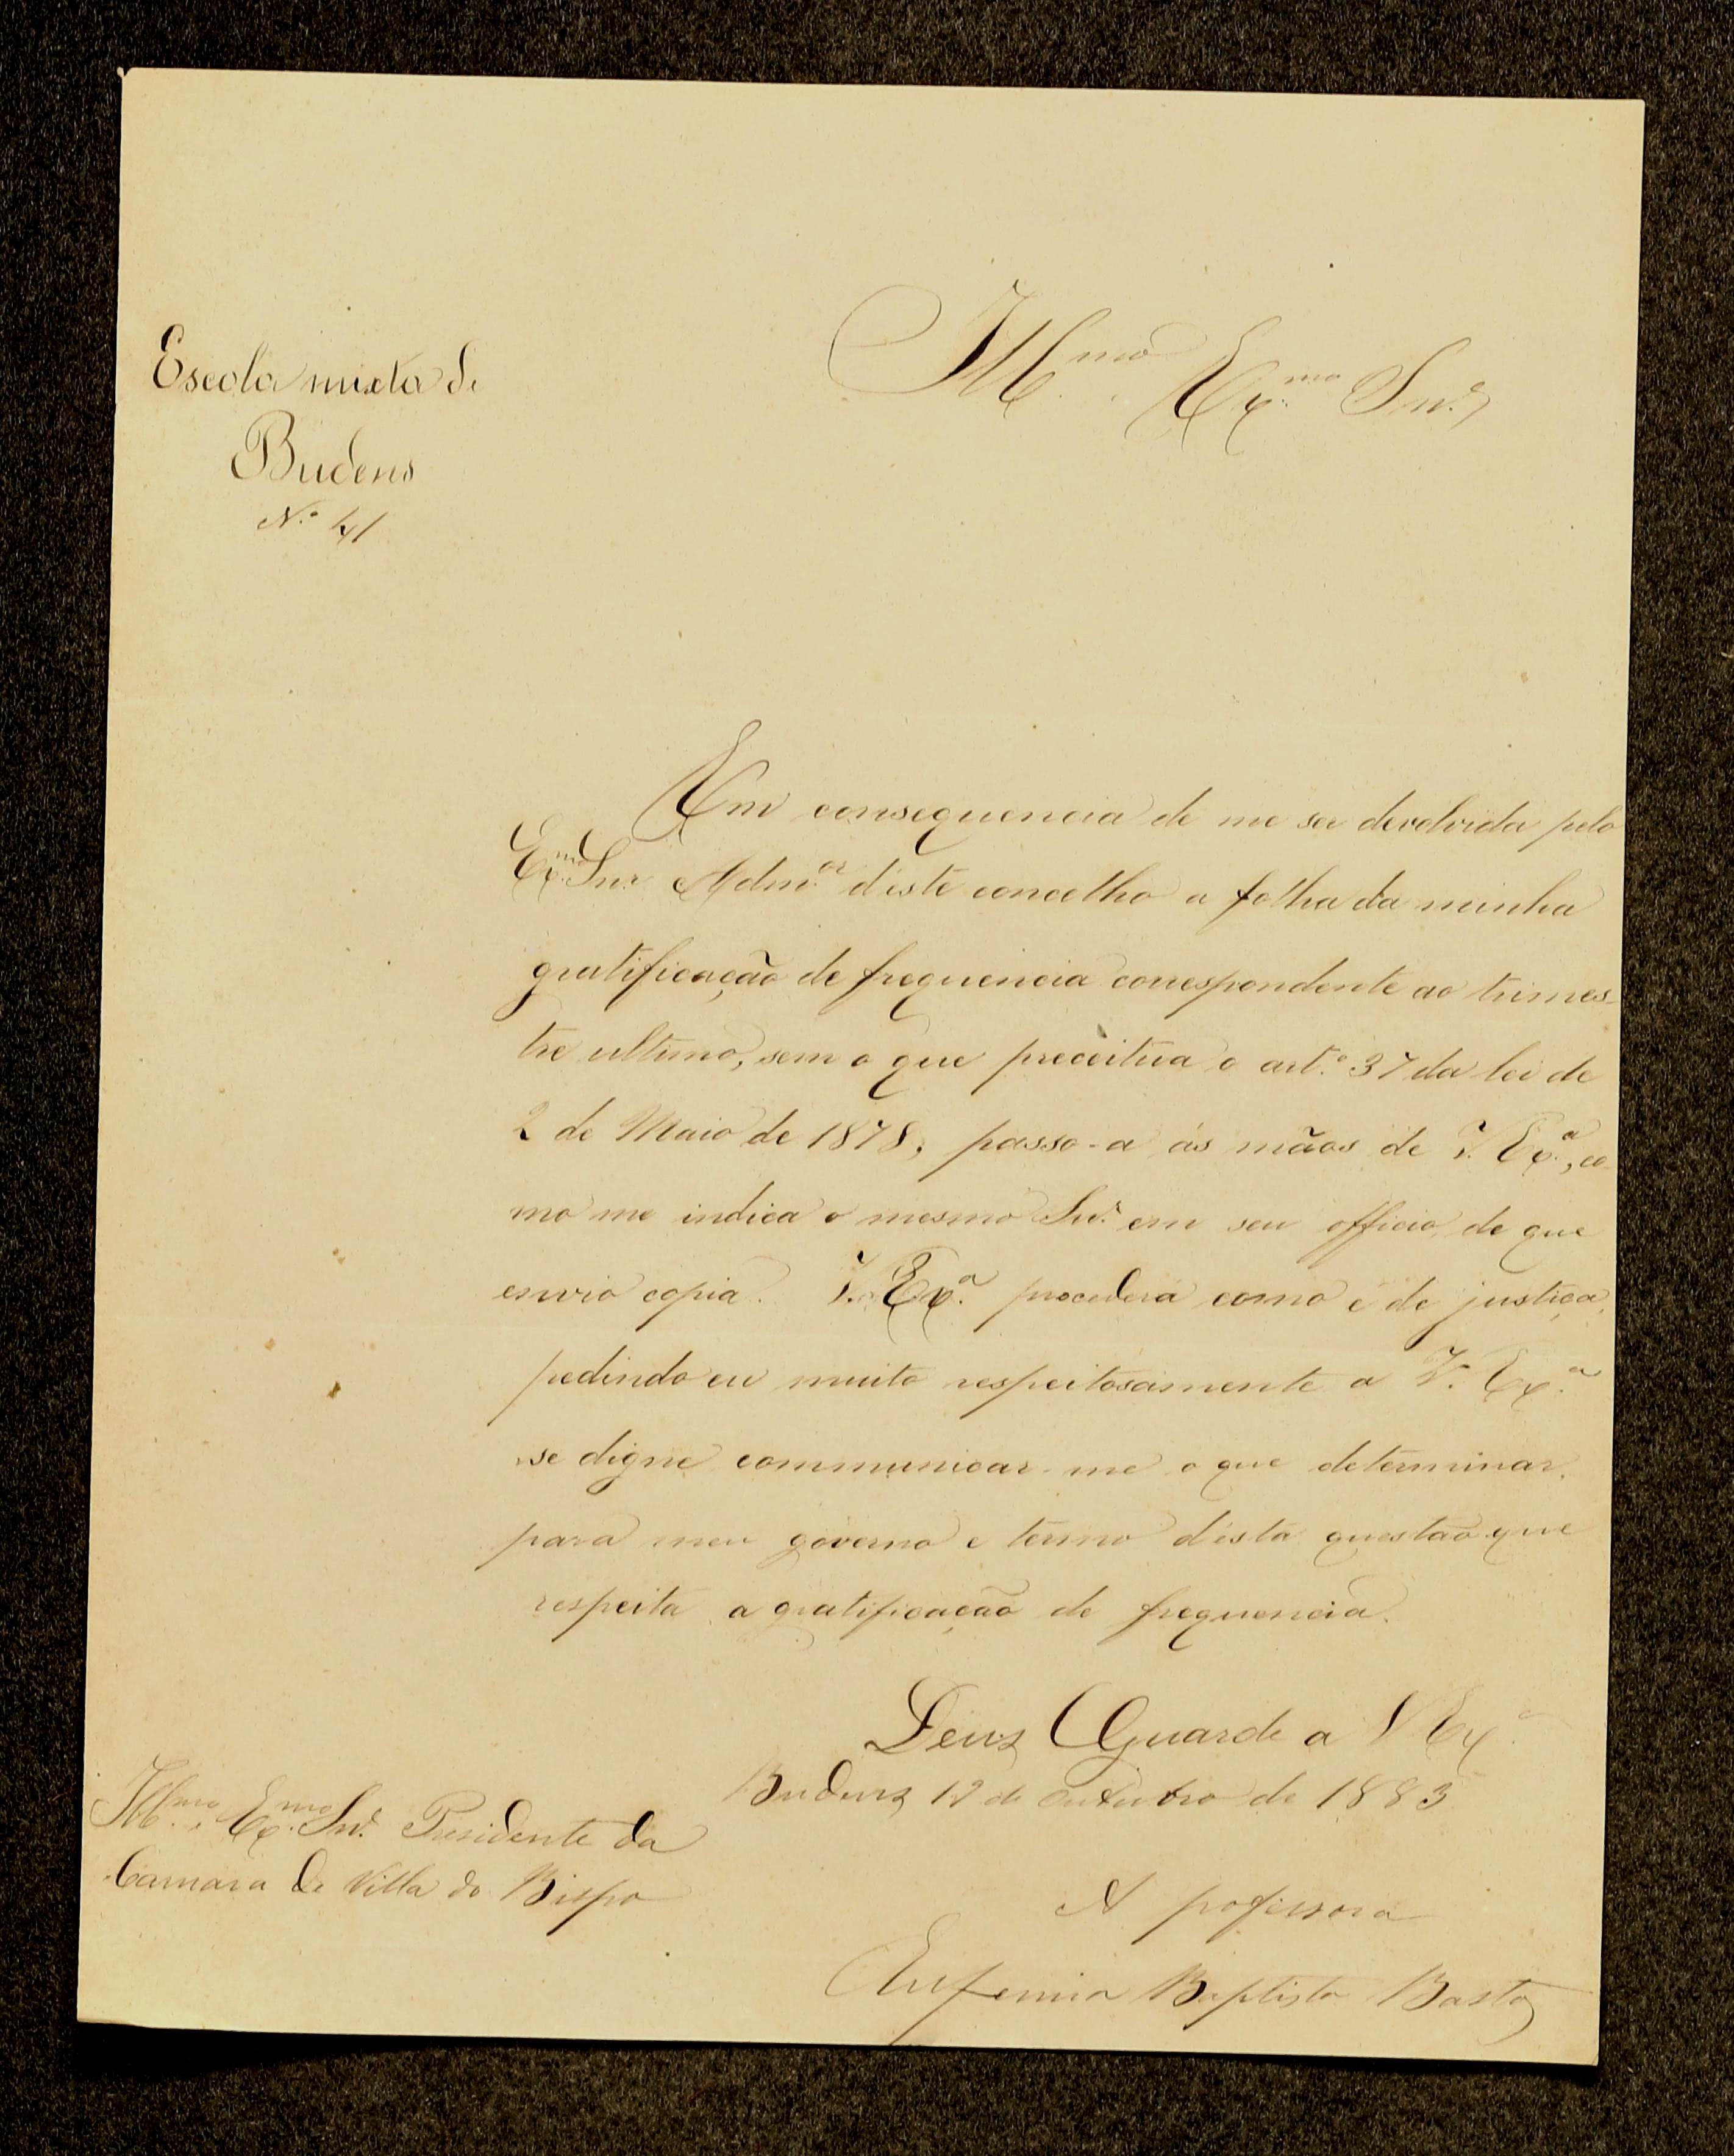 Escola mixta de
Budens
N.º 41
Ill.mo Ex.mo Snr.
Em consequencia de me ser devolvida pelo
Ex.mo Snr. Adm.or d'este concelho a folha da minha
gratificação de frequencia correspondente ao trimes-
tre ultimo, sem o que preceitua o art.º 37 da lei de
2 de Maio de 1878, passo-a ás mãos de V. Ex.ª, co-
mo me indica o mesmo Snr. em seu officio, de que
envio copia. V. Ex.ª procederá como é de justiça,
pedindo eu muito respeitosamente a V. Ex.ª
se digne communicar-me o que determinar,
para meu governo e termo d'esta questão que
respeita a gratificação de frequencia.
Deus Guarde a V Ex.ª
Budens 12 de Outubro de 1883
Ill.mo e Ex.mo Snr. Presidente da
Camara de Villa do Bispo
A professora
Eufemia Baptista Basto